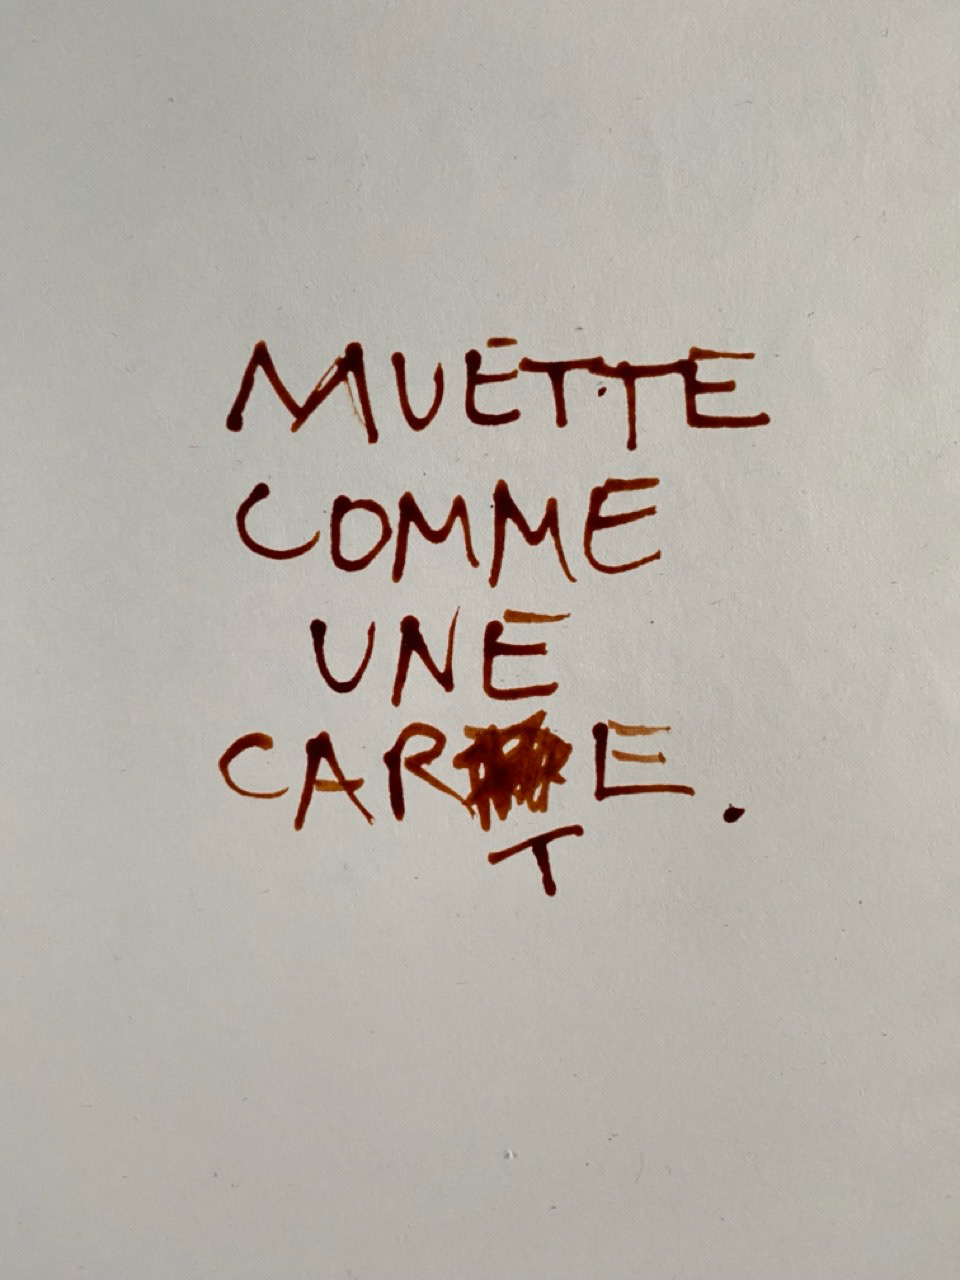 MUETTE
COMME
UNE
CAR E.
T